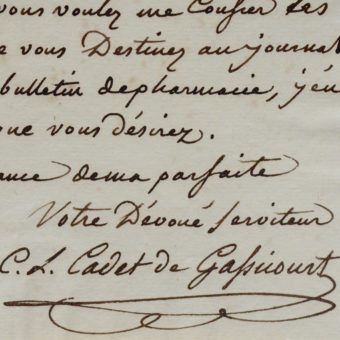 vous voulez me Confier les
e vous Destinez au journal
bulletin de pharmacie, j'en
que vous désirez.
ance de ma parfaite
Votre Dévoué Serviteur
C. L. Cadet de Gassicourt